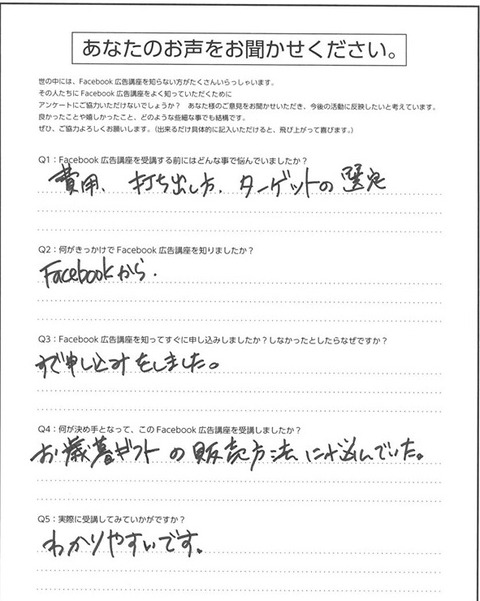 あなたのお声をお聞かせください。
世の中には、Facebook 広告講座を知らない方がたくさんいらっしゃいます。
その人たちに Facebook 広告講座をよく知っていただくために
アンケートにご協力いただけないでしょうか？ あなた様のご意見をお聞かせいただき、今後の活動に反映したいと考えています。
良かったことや嬉しかったこと、どのような些細な事でも結構です。
ぜひ、ご協力よろしくお願いします。（出来るだけ具体的に記入いただけると、飛び上がって喜びます。）
Q1：Facebook 広告講座を受講する前にはどんな事で悩んでいましたか？
費用、打ち出し方、ターゲットの選定
Q2：何がきっかけで Facebook 広告講座を知りましたか？
Facebookから.
Q3：Facebook 広告講座を知ってすぐに申し込みしましたか？しなかったとしたらなぜですか？
すぐ申し込みをしました。
Q4：何が決め手となって、この Facebook 広告講座を受講しましたか？
お歳暮ギフトの販売方法に悩んでいた。
Q5：実際に受講してみていかがですか？
わかりやすいです。